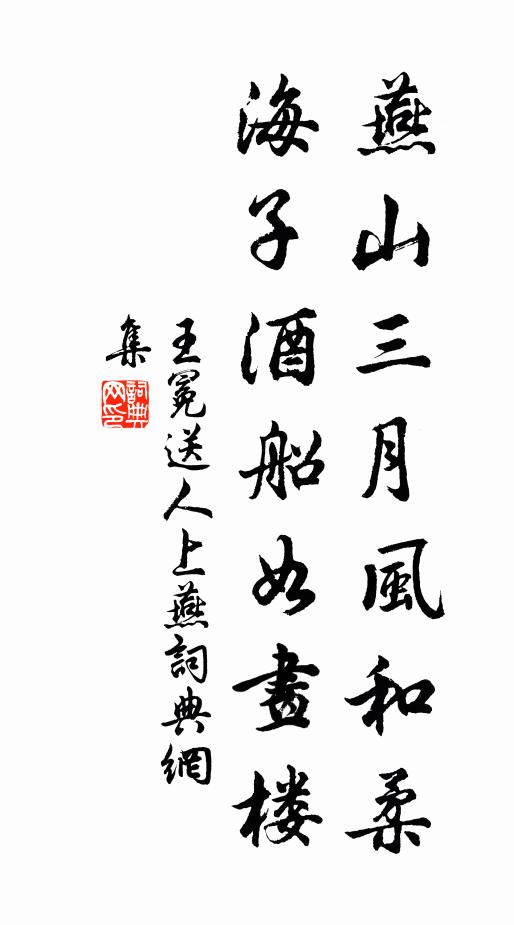 燕山三月風和柔
海子酒船如畫楼
王冕送人上燕詞典網
集
詞典
网印